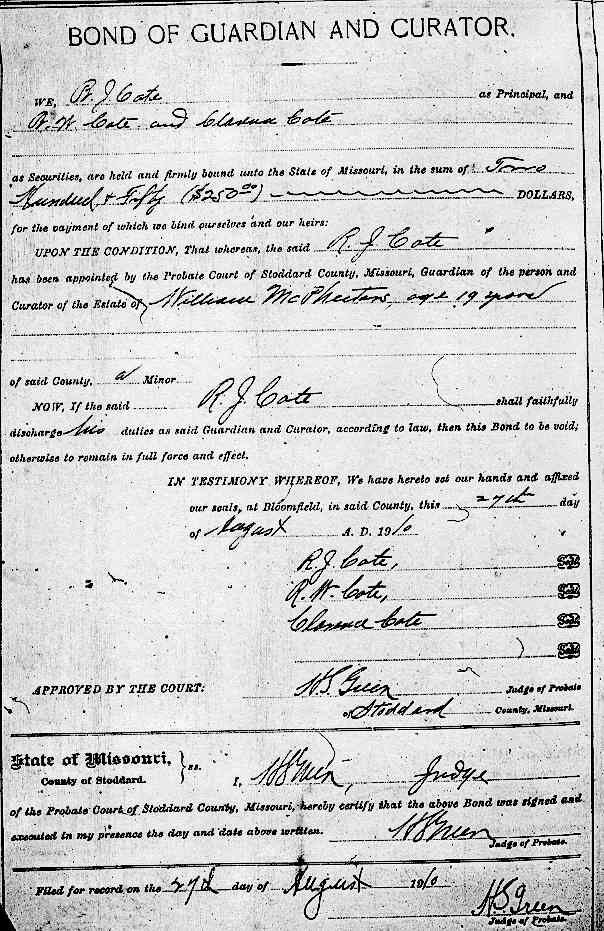 BOND OF GUARDIAN AND CURATOR.
WE, R. J. Cate as Principal, and
R. W. Cate and Clarence Cate
as Securities, are held and firmly bound unto the State of Missouri, in the sum of Two
Hundred & Fifty ($250.00) DOLLARS,
for the payment of which we bind ourselves and our heirs:
UPON THE CONDITION, That whereas, the said R. J. Cate
has been appointed by the Probate Court of Stoddard County, Missouri, Guardian of the person and
Curator of the Estate of William McPheeters, age 19 years
of said County, a Minor
NOW, If the said R. J. Cate shall faithfully
discharge his duties as said Guardian and Curator, according to law, then this Bond to be void;
otherwise to remain in full force and effect.
IN TESTIMONY WHEREOF, We have hereto set our hands and affixed
our seals, at Bloomfield, in said County, this 27th day
of August A. D. 1910
R. J. Cate, Seal
R. W. Cate, Seal
Clarence Cate Seal
Seal
APPROVED BY THE COURT: W S Green Judge of Probate
of Stoddard County, Missouri.
State of Missouri, } ss.
County of Stoddard.
I, W S Green, Judge
of the Probate Court of Stoddard County, Missouri, hereby certify that the above Bond was signed and
executed in my presence the day and date above written. W S Green
Judge of Probate.
Filed for record on the 27th day of August 1910
W S Green
Judge of Probate.